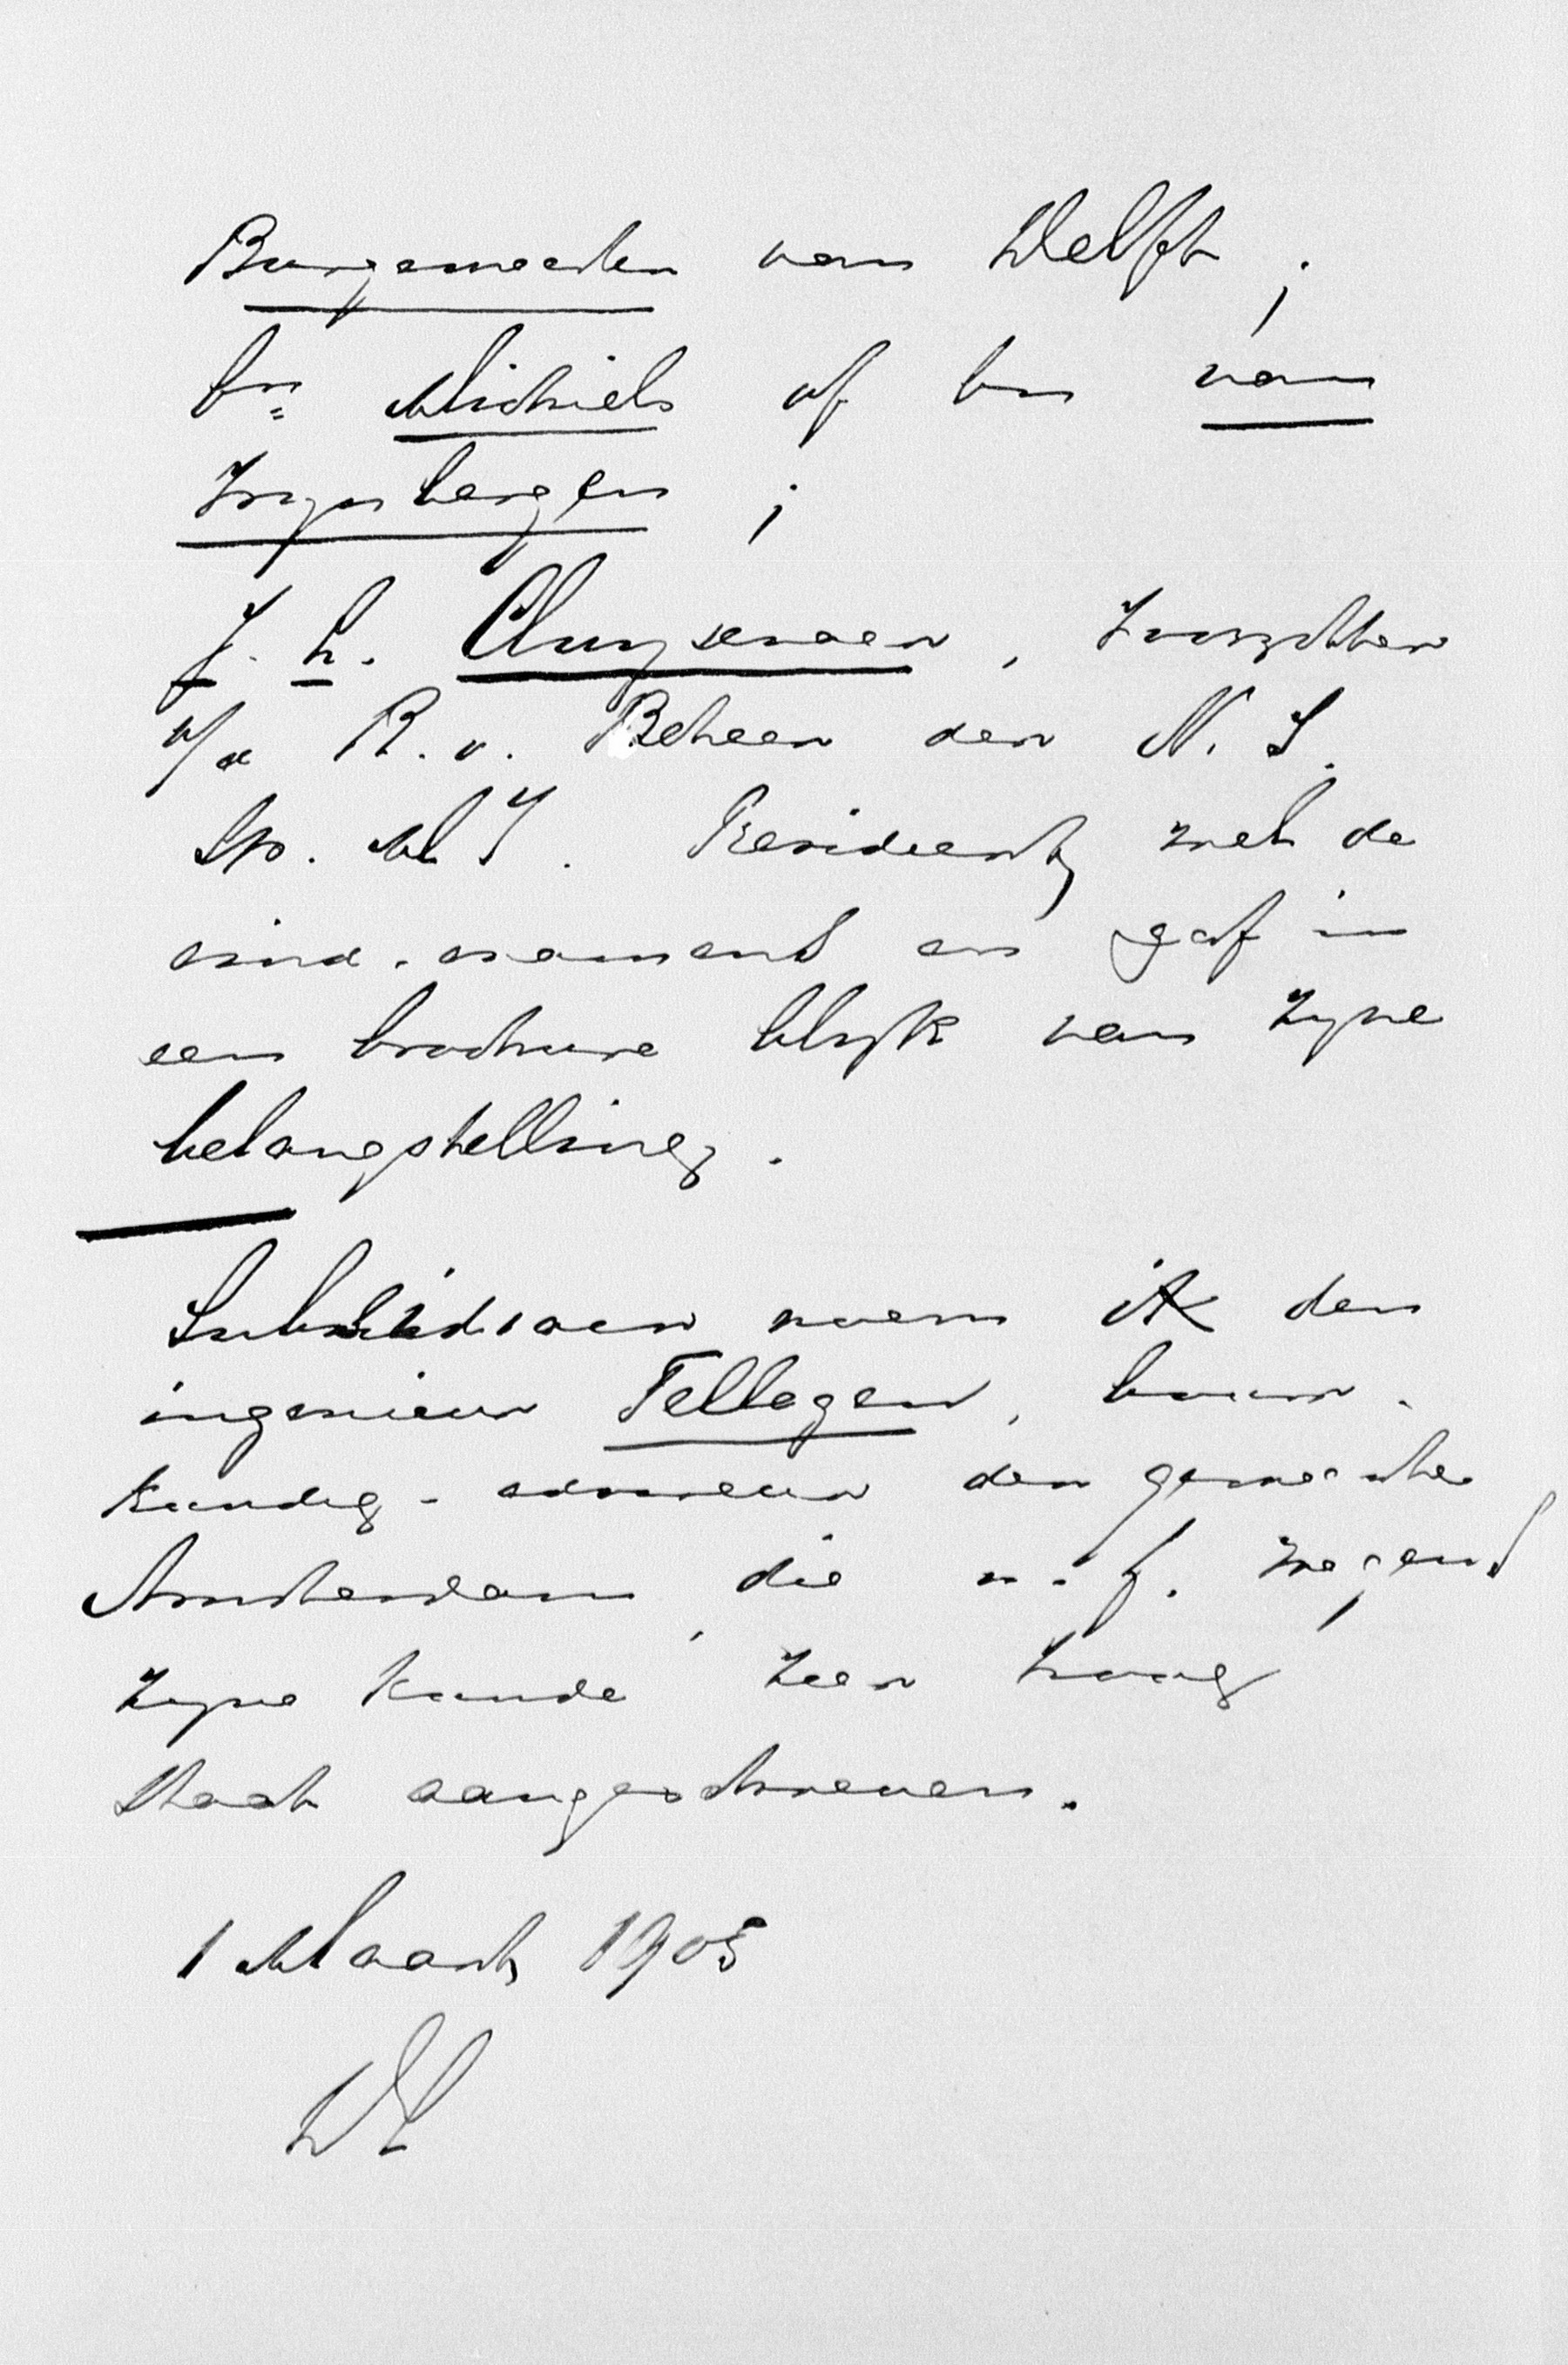 Burgemeester van Delft ;
bn Michiels of bn van
Ittersum bergen ;
J. L. Cluysenaer, Voorzitter
v/d R. v. Beheer der N. S.
Sp. MY. Presideert met de
eind-examens en gaf in
een brochure blijk van zyne
belangstelling.
Subsidiair noem ik den
ingenieur Tellegen, bouw-
kundig-adviseur der gemeente
Amsterdam, die m.i. wegens
zyne kunde zeer hoog
staat aangeschreven.
1 Maart 1905